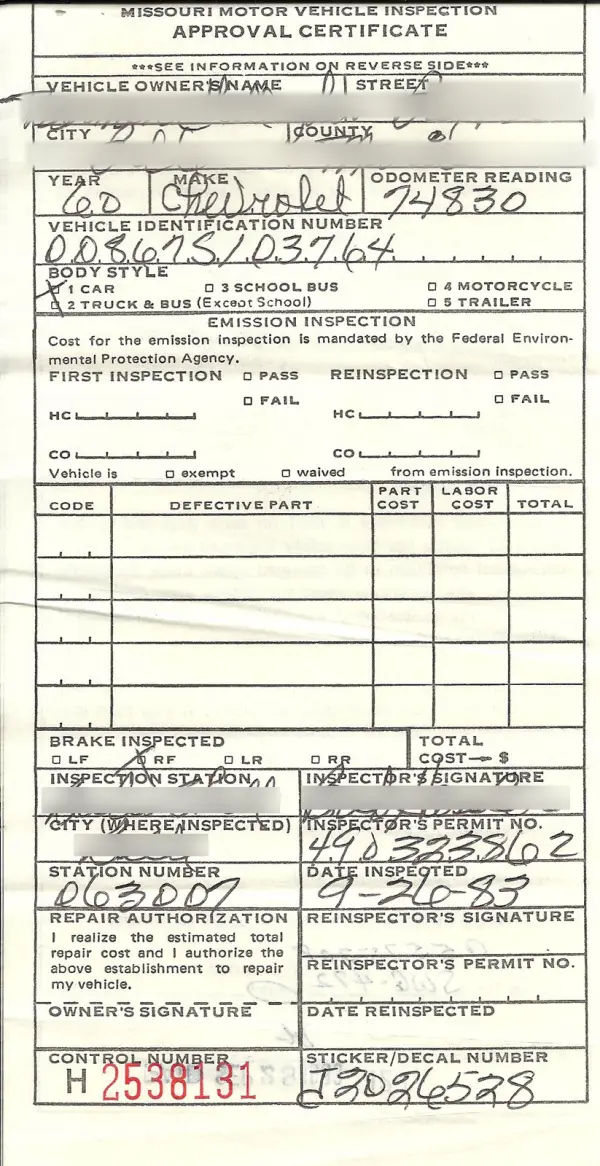 MISSOURI MOTOR VEHICLE INSPECTION
APPROVAL CERTIFICATE
***SEE INFORMATION ON REVERSE SIDE***
VEHICLE OWNER'S NAME STREET
CITY COUNTY
YEAR MAKE ODOMETER READING
60 Chevrolet 74830
VEHICLE IDENTIFICATION NUMBER
00867S103764
BODY STYLE
1 CAR 3 SCHOOL BUS 4 MOTORCYCLE
2 TRUCK & BUS (Except School) 5 TRAILER
EMISSION INSPECTION
Cost for the emission inspection is mandated by the Federal Environ-
mental Protection Agency.
FIRST INSPECTION PASS REINSPECTION PASS
FAIL FAIL
HC HC
CO CO
Vehicle is exempt waived from emission inspection.
CODE DEFECTIVE PART PART COST LABOR COST TOTAL
BRAKE INSPECTED TOTAL
LF RF LR RR COST $
INSPECTION STATION INSPECTOR'S SIGNATURE
CITY (WHERE INSPECTED) INSPECTOR'S PERMIT NO.
490323862
STATION NUMBER DATE INSPECTED
063007 9-26-83
REPAIR AUTHORIZATION REINSPECTOR'S SIGNATURE
I realize the estimated total
repair cost and I authorize the
above establishment to repair
my vehicle.
REINSPECTOR'S PERMIT NO.
OWNER'S SIGNATURE DATE REINSPECTED
CONTROL NUMBER STICKER/DECAL NUMBER
H 2538131 J2026528